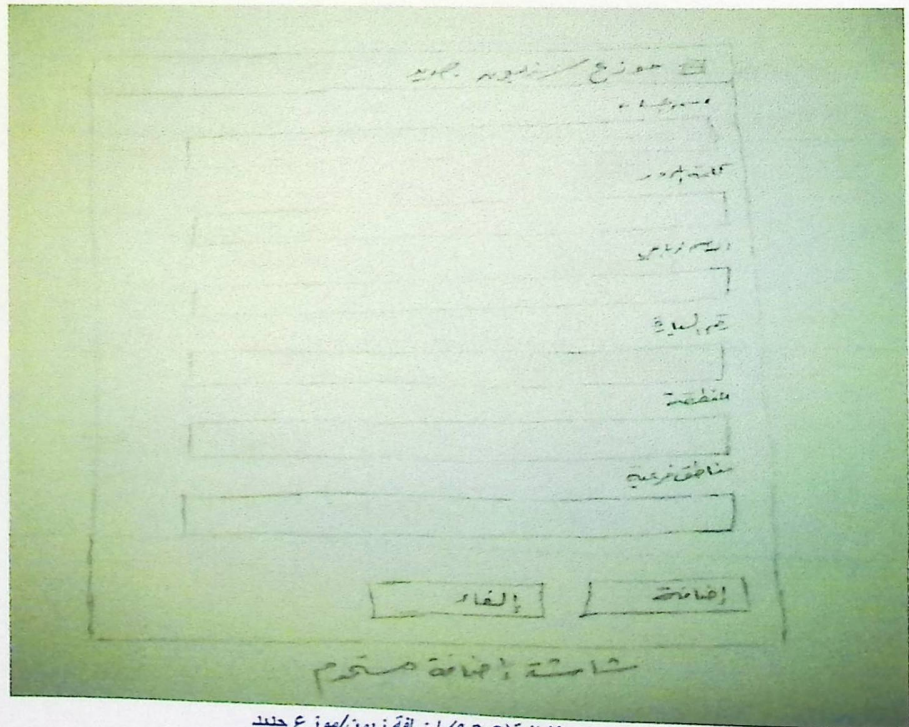 موزع / زبون جديد
اسم المستخدم
كلمة المرور
الاسم الرباعي
رقم السيارة
المنطقة
مناطق فرعية
إضافة إلغاء
شاشة إضافة مستخدم
إضافة زبون/موزع جديد